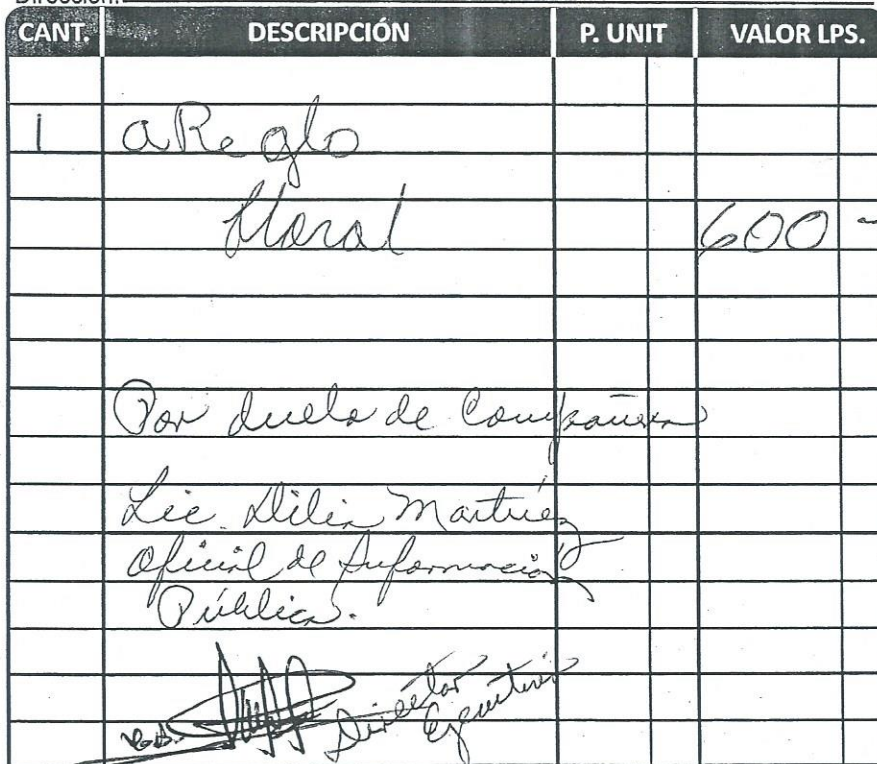 Dirección:
CANT. DESCRIPCIÓN P. UNIT VALOR LPS.
1 aReglo
floral 600 -
Por duelo de Compañera
Lic. Dilia Martínez
Oficial de Información
Pública.
Director
Ejecutivo